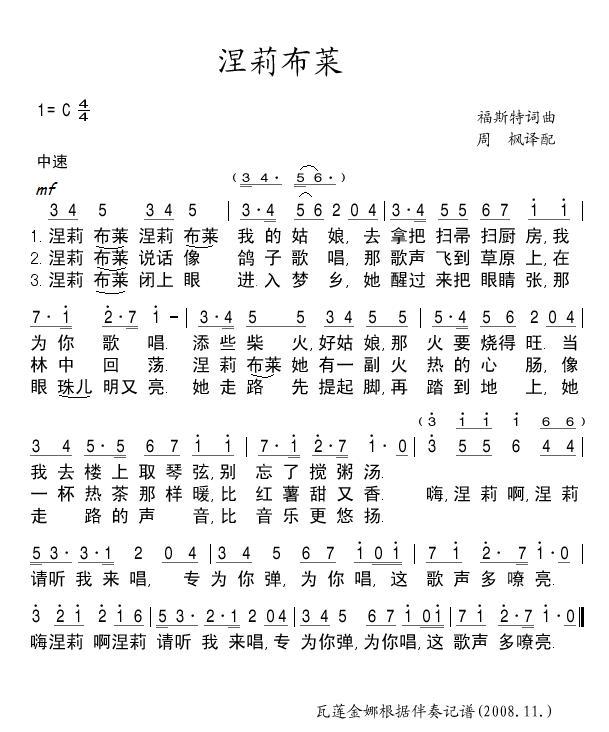 涅莉布莱
1= C 4/4
福斯特词曲
周 枫译配
中速
mf
(3 4· 5 6·)
3 4 5 3 4 5 | 3·4 5 6 2 0 4 | 3·4 5 5 6 7 i i |
1. 涅莉 布莱 涅莉 布莱 我 的 姑 娘, 去 拿把 扫帚 扫厨 房, 我
2. 涅莉 布莱 说话 像 鸽 子 歌 唱, 那 歌声 飞到 草原 上, 在
3. 涅莉 布莱 闭上 眼 进 入 梦 乡, 她 醒过 来把 眼睛 张, 那
7· i 2·7 i - | 3·4 5 5 3 4 5 5 | 3·4 5 6 2 0 4 |
为 你 歌 唱. 添 些 柴 火, 好姑 娘, 那 火 要 烧得 旺. 当
林 中 回 荡. 涅 莉 布莱 她 有一 副 火 热 的 心 肠, 像
眼 珠儿 明又 亮. 她 走 路 先 提起 脚, 再 踏 到 地 上, 她
(3 i i i 6 6)
3 4 5·5 6 7 i i | 7·i 2·7 i·0 | 3 5 5 6 4 4 |
我 去 楼 上 取 琴 弦, 别 忘 了 搅 粥 汤.
一 杯 热 茶 那 样 暖, 比 红 薯 甜 又 香. 嗨, 涅 莉 啊, 涅 莉
走 路 的 声 音, 比 音 乐 更 悠 扬.
5 3· 3·1 2 0 4 | 3 4 5 6 7 i 0 i | 7 i 2·7 i·0 |
请听 我 来 唱, 专 为 你 弹, 为 你 唱, 这 歌 声 多 嘹 亮.
3 2 i 2 i 6 | 5 3· 2·1 2 0 4 | 3 4 5 6 7 i 0 i | 7 i 2·7 i·0 ‖
嗨 涅莉 啊涅莉 请听 我 来唱, 专 为你弹, 为你唱, 这 歌声 多嘹亮.
瓦莲金娜根据伴奏记谱(2008.11.)